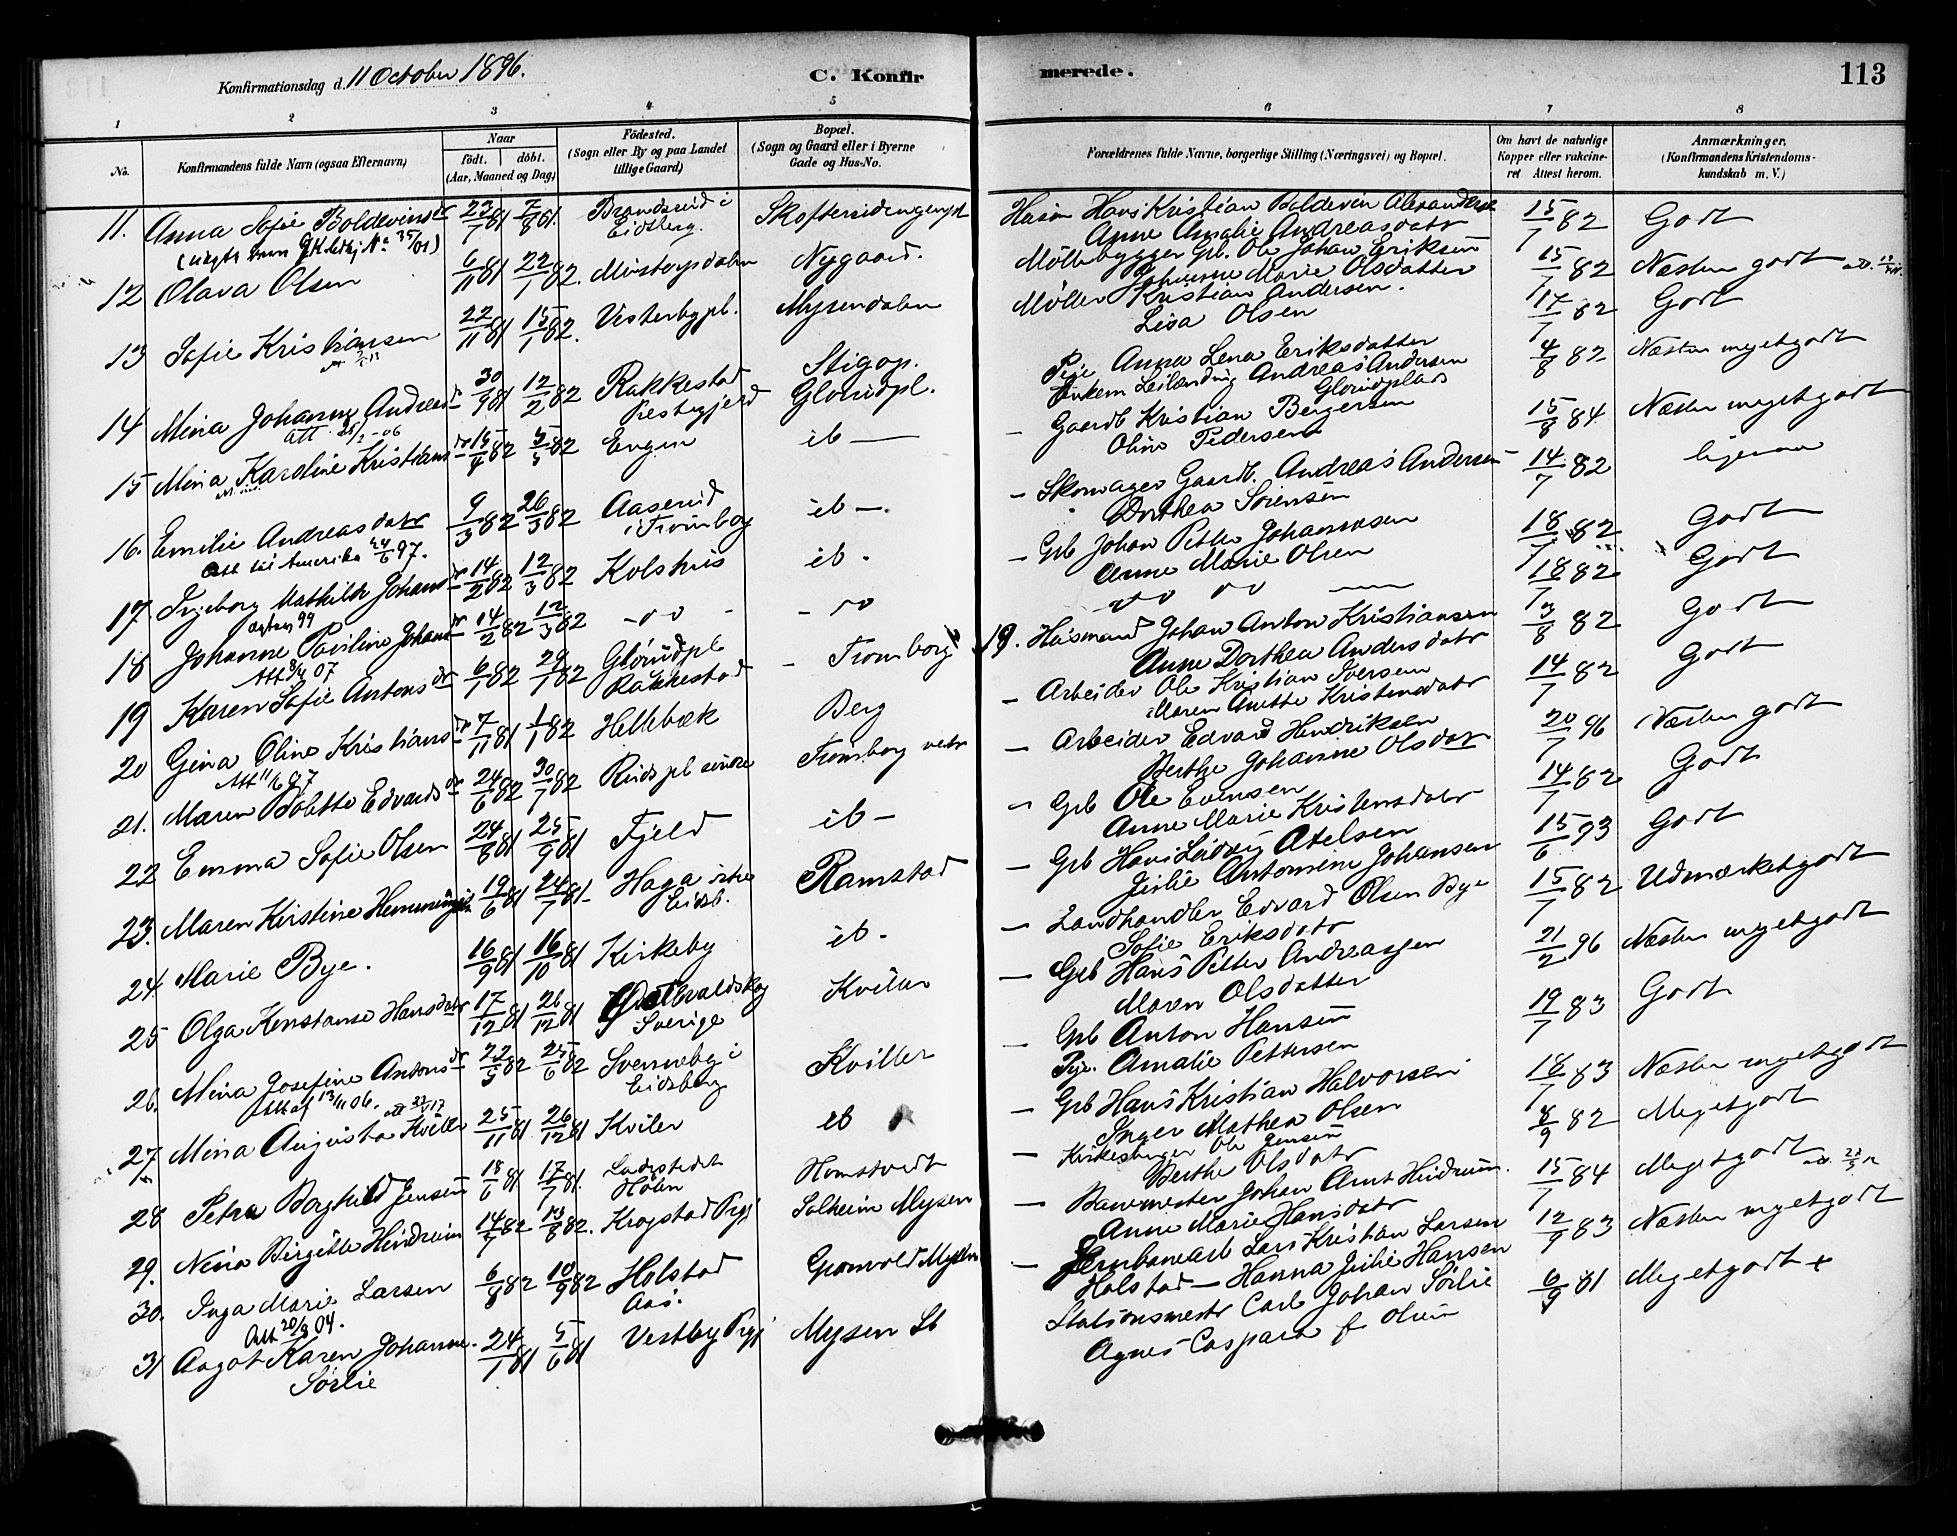 Konfirmationsdag d. 11 October 1896.
C. Konfir
merede.
113
1 2 3 4 5 6 7 8
No.
Konfirmandens fulde Navn (ogsaa Efternavn)
Naar
födt. döbt.
(Aar, Maaned og Dag)
Födested.
(Sogn eller By og paa Landet
tillige Gaard)
Bopæl.
(Sogn og Gaard eller i Byerne
Gade og Hus-No.
Forældrenes fulde Navne, borgerlige Stilling (Næringsvei) og Bopæl.
Om havt de naturlige
Kopper eller vakcine-
ret Attest herom.
Anmærkninger.
(Konfirmandens Kristendoms-
kundskab m. V.)
11. Anna Sofie Boldevinsdr 23/7 81 7/8 81. Brandsrud i Hans Kristian Boldevin Alexandersen 15/7 82 Godt
Eidsberg. Anne Amalie Andreasdatr
12 Olava Olsen 6/11 81 22/1 82. Nygaard. Möllebygger Gbr. Ole Johan Eriksen 15/7 82 Næsten godt
Marie Olsdatter
13 Sofie Kristiansen 22/11 81 15/1 82. Vesterbypl. Mysendalen Möller Kristian Andersen. 17/7 82 Godt
Lisa Olsen
14 Mina Johanne Andreasdr 30/9 81 12/2 82 Rakkestad Stigop. Pige Anna Lena Eriksdatter 4/8 82 Næsten megetgodt
Att 25/2-06 Præstegjeld Glorudpl. Enkem Andreas Andersen
Glorudplads
15 Mina Karoline Kristiansdr 15/4 82 5/3 82 Engen ib — Gaardb Kristian Bergersen 15/8 84 Næsten megetgodt
Oline Pedersen
16. Emilie Andreasdatr 9/3 82 26/3 82 Aaserud ib —. — Skomager Gaardb. Andreas Andersen 14/7 82 ligesaa
Att til Amerika 24/6 97. i Trömborg Dorthea Sörensen
17. Ingeborg Mathilde Johansdr 14/2 82 12/3 82 Kolshus ib. — Gbr Johan Petter Johannesen 18/7 82 Godt
Anne Marie Olsen
18 Johanne Pauline Johansdr 14/2 82 12/3 82 18/7 82 Godt
Att 3/4 07
19 Karen Sofie Antonsdr 6/1 82 29/1 82 Glorudpl — Trömborg 19. Husmand Johan Anton Kristiansen 3/8 82 Godt
Rakkestad Anne Dorthea Andersdatr
20 Gina Oline Kristiansdr 7/11 81 1/1 82 Hellebæk Berg — Arbeider Ole Kristian Iversen 14/7 82 Godt
Att 11/6 97 Maren Anette Kristensdatr
21. Maren Bolette Edvardsdr 24/6 82 30/7 82 Trömborg — Arbeider Edvard Hendriksen 20/7 96 Næsten godt
Berthe Johanne Olsdatr
22 Emma Sofie Olsen 24/8 81 25/9 81 Fjeld ib — — Gbr Ole Evensen 14/7 82 Godt
Anne Marie Kristensdatr
23. Maren Kirstine 19/6 81 24/7 81. Haga Ramstad — Gbr Hans 15/6 93 Godt
Eidsb. Julie Antomine Johansen
24 Marie Bye. 16/9 81 16/10 81 Kirkeby ib. — Landhandler Edvard Olsen Bye 15/7 82 Udmærketgodt
Sofie Eriksdatr
25 Olga Konstanse Hansdatr 17/12 81 26/12 81 — Gbr Hans Petter Andreassen 21/2 96 Næsten megetgodt
Sverige Maren Olsdatter
26. Mina Josefine Antonsdr 22/5 82 25/6 82 i Kviller — Gbr Anton Hansen 19/7 83 Godt
13/11 06. Eidsberg Pige. Amalie Pettersen
27 Mina Augusta Kviller 25/11 81 26/12 81 Kviler ib — Gbr Hans Kristian Halvorsen 18/7 83 Næsten megetgodt
Inger Mathea Olsen
28 Petra Borghild Jensen 18/6 81 17/7 81. Ladestedet Homstvedt — Kirkesanger Ole Jensen 8/9 82 Megetgodt
Hölen Berthe Olsdatr
29. Nina Birgitte Hindrum 14/7 82 13/8 82. Krogstad Prgj Solheim Mysen — Banemester Johan Arnt Hindrum. 15/7 84 Megetgodt
Anne Marie Hansdatr
30. Inga Marie Larsen 6/8 82 10/9 82 Holstad Mysen — Jernbanearb Lars Kristian Larsen 12/9 83 Næsten megetgodt
Att 20/8 04. Aas. Holstad — Hanna Julie Hansen
31 Aagot Karen Johanne. 24/1 81 5/6 81 Vestby Prgj Mysen St Stationsmestr Carl Johan Sörlie 6/9 81 Megetgodt +
Sörlie Agnes Caspara f Olsen